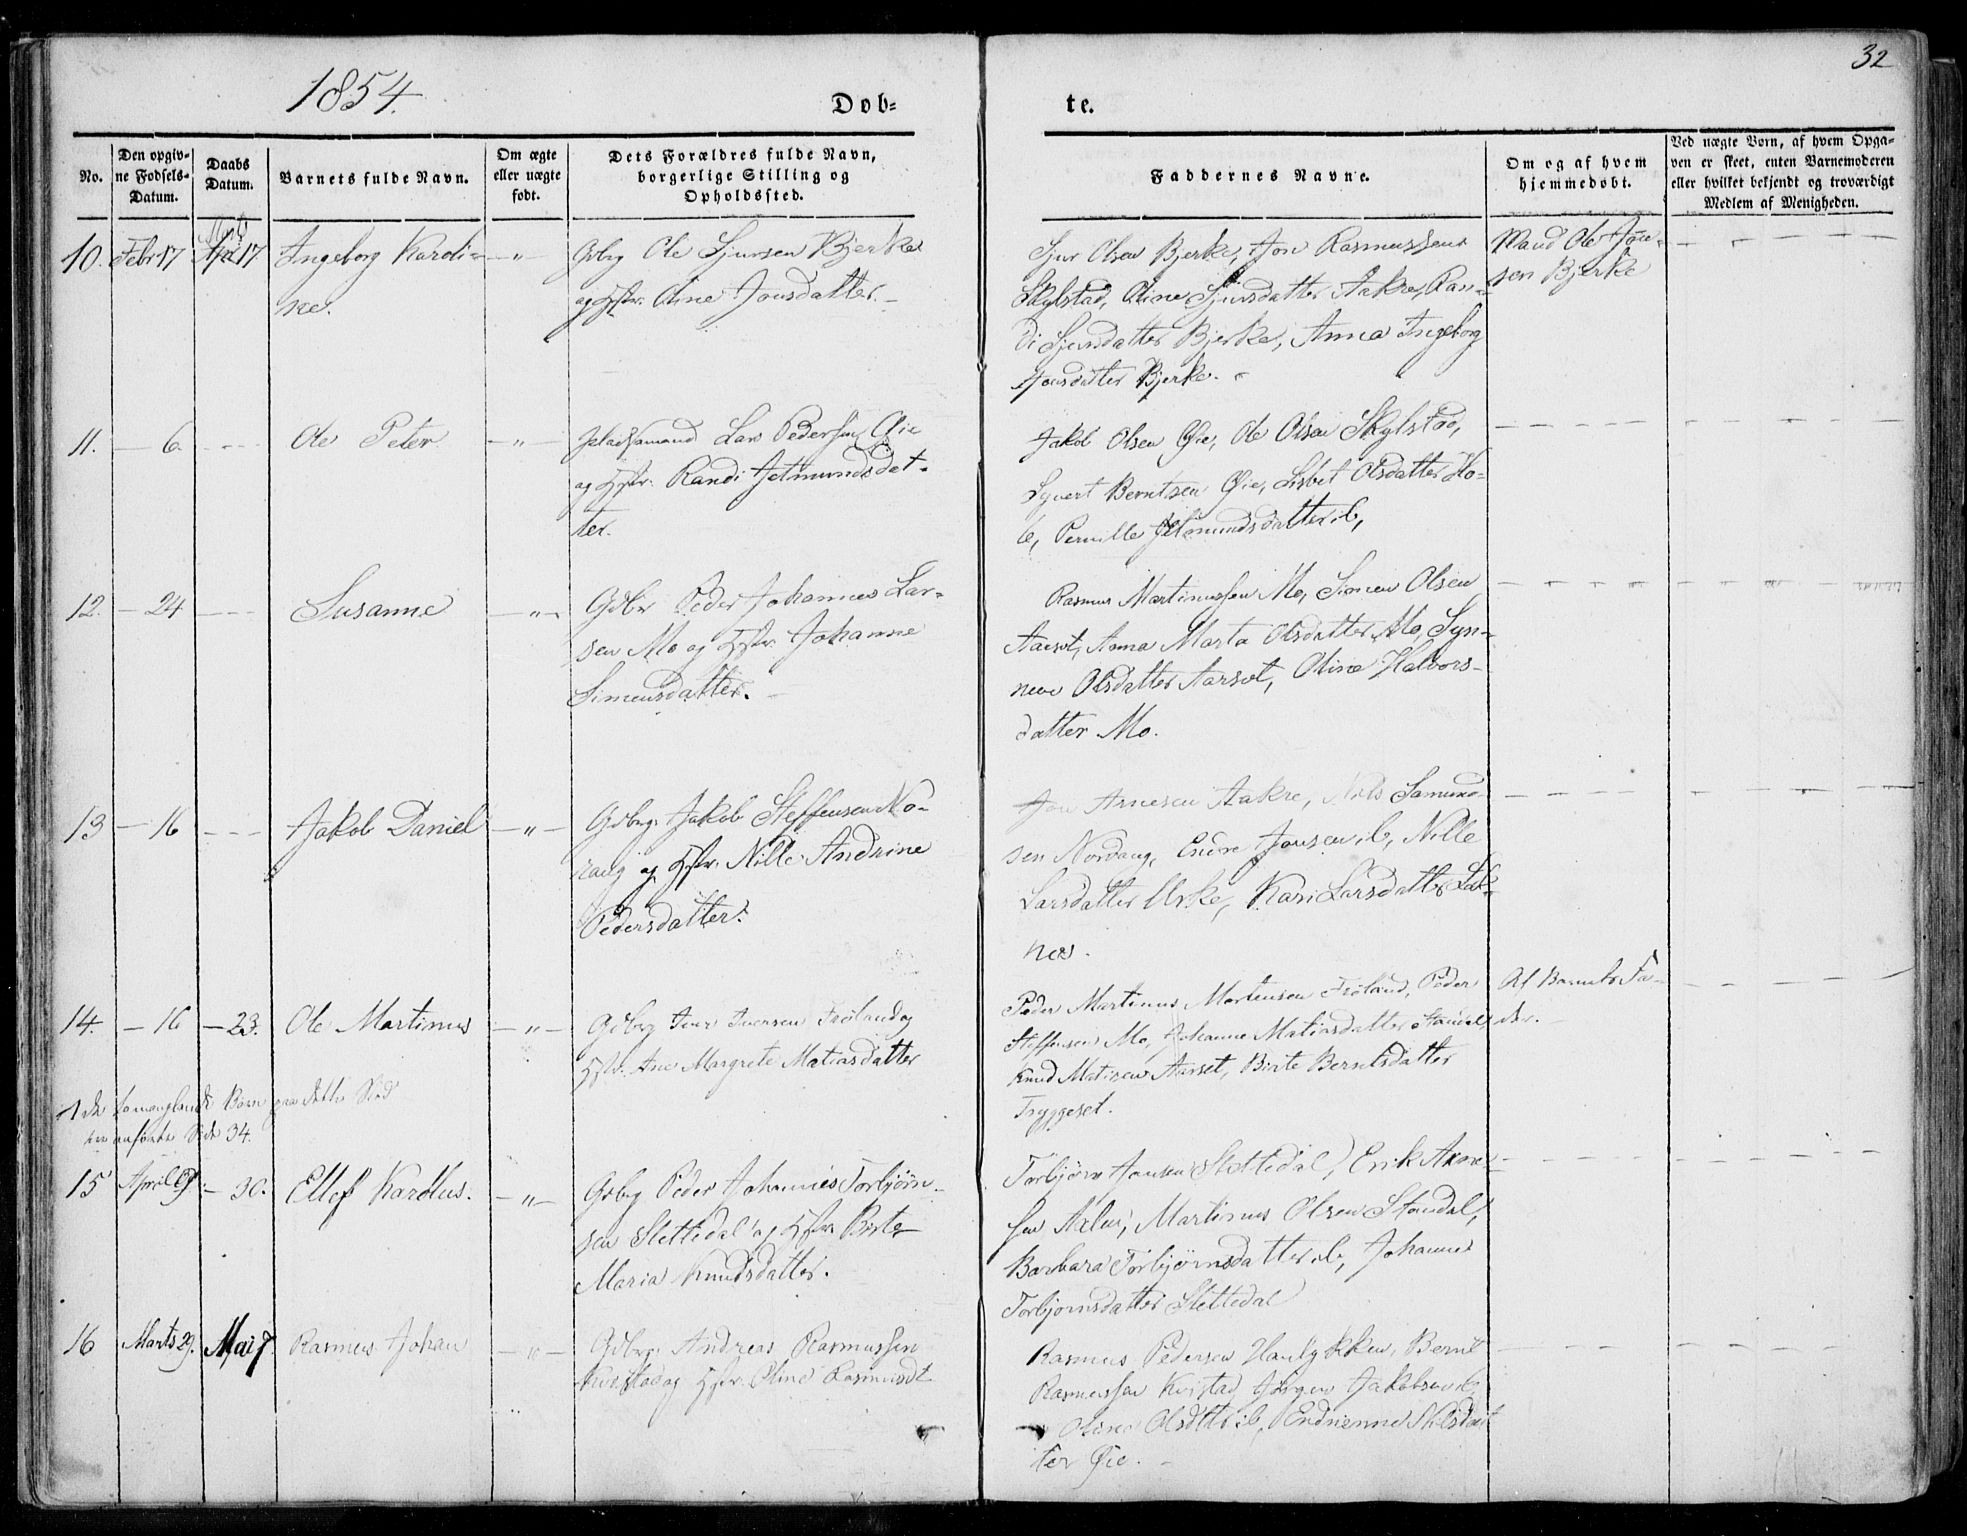 32
1854.
Døb-
te.
No.
Den opgiv-
ne Fødsels-
Datum.
Daabs
Datum.
Barnets fulde Navn.
Om ægte
eller uægte
født.
Dets Forældres fulde Navn,
borgerlige Stilling og
Opholdssted.
Faddernes Navne.
Om og af hvem
hjemmedøbt.
Ved uægte Børn, af hvem Opga-
ven er skeet, enten Barnemoderen
eller hvilket bekjendt og troværdigt
Medlem af Menigheden.
10. Febr 17 17 Ingeborg Karoli- — " — Gdbrg Ole Sjursen Bjerke
ne. og Hstr. Oline Jonsdatter. —
Sjur Olsen Bjerke, Jon Rasmussen
Skylstad, Oline Sjursdatter Aakre, Ran-
di Sjursdatter Bjerke, Anna Ingeborg
Jonsdatter Bjerke.
Mand Ole Jon-
sen Bjerke
11. — 6 — Ole Peter — " — Pladsmand Lars Pedersen Øie
og Hstr. Randi Jetmundsdat-
ter.
Jakob Olsen Øie, Ole Olsen Skylstad,
Syvert Berntsen Øie, Lisbet Olsdatter
Pernille Jetmundsdatter ib,
12. — 24 — Susanne — " — Gdbr Peder Johannes Lar-
sen Mo og Hstr. Johanne
Simensdatter. —
Rasmus Martinussen Mo, Simen Olsen
Aarset, Anna Marta Olsdatter Mo, Syn-
neve Olsdatter Aarset, Oline Halvors-
datter Mo.
13 — 16 — Jakob Daniel — " — Gdbrg. Jakob Steffensen No-
rang og Hstr. Nille Andrine
Pedersdatter.
Jon Arnesen Aakre, Nils Samund-
sen Nordang, Endre Jonsen ib, Nille
Larsdatter Urke, Kari Larsdatter
nes.
14. — 16 — 23. Ole Martinus — " — Gdbrg Iver Iversen Frøland og
Hstr. Ane Margrete Matiasdatter
Peder Martinus Mortensen Frøland, Peder
Steffensen Mo, Johanne Matiasdatter Standal,
Knud Matisen Aarset, Birte Berntsdatter
Tryggeset.
Af Barnets Fa-
der.
de manglende Børn paa dette Sted
ere anførte Side 34.
15 April — 30. Ellef Karolus. — " — Gdbrg Peder Johannes Torbjørn-
sen Slettedal og Hstr. Birte
Maria Knudsdatter.
Torbjørn Jansen Slettedal, Erik Arne-
sen Martinus Olsen Standal,
Barbara Torbjørnsdatter ib, Johanne
Torbjørnsdatter Slettedal
16 Marts 29. Mai 7 Rasmus Johan — " — Gdbrg. Andreas Rasmussen
Kvistad og Hstr. Oline Rasmusdt
Rasmus Pedersen Bernt
Rasmussen Kvistad, Jørgen Jakobsen ib,
Oline Olsdtr ib, Endrienne Nilsdat
ter Øie. —